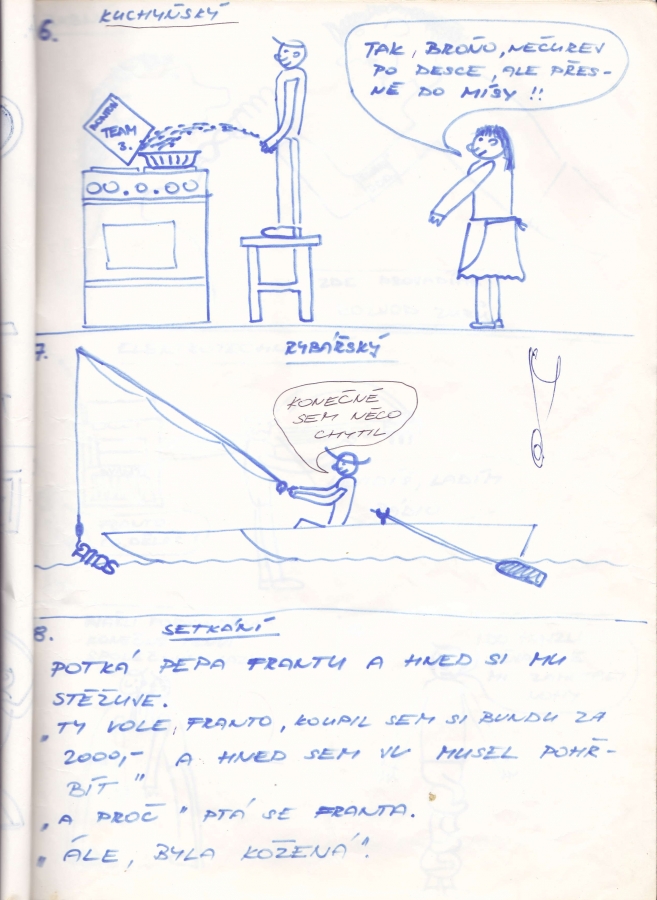 6.
KUCHYŇSKÝ
TAK, BROŇO, NEČUREJ
PO DESCE, ALE PŘES-
NĚ DO MÍSY !!
TEAM
3.
7.
RYBÁŘSKÝ
KONEČNĚ
SEM NĚCO
CHYTIL
8.
SETKÁNÍ
POTKÁ PEPA FRANTU A HNED SI MU
STĚŽUJE.
„TY VOLE, FRANTO, KOUPIL SEM SI BUNDU ZA
2000,- A HNED SEM JU MUSEL POHŘ-
BÍT"
„A PROČ" PTÁ SE FRANTA.
„ÁLE, BYLA KOŽENÁ".